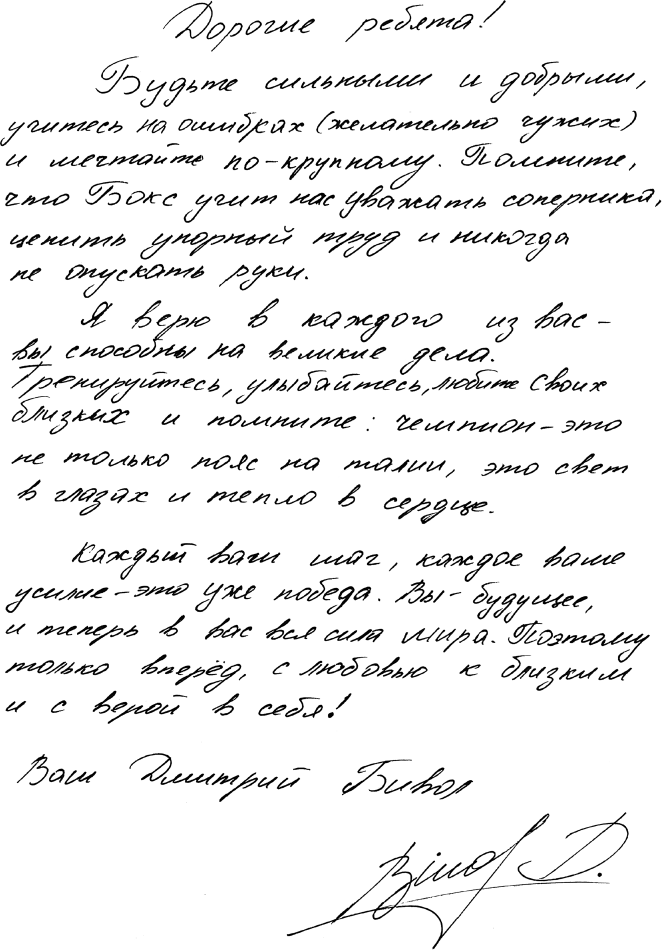 Дорогие ребята!
Будьте сильными и добрыми,
учитесь на ошибках (желательно чужих)
и мечтайте по-крупному. Помните,
что Бокс учит нас уважать соперника,
ценить упорный труд и никогда
не опускать руки.
Я верю в каждого из вас –
вы способны на великие дела.
Тренируйтесь, улыбайтесь, любите своих
близких и помните: чемпион – это
не только пояс на талии, это свет
в глазах и тепло в сердце.
Каждый ваш шаг, каждое ваше
усилие – это уже победа. Вы – будущее,
и теперь в вас вся сила мира. Поэтому
только вперёд, с любовью к близким
и с верой в себя!
Ваш Дмитрий Бивол
Bivol D.